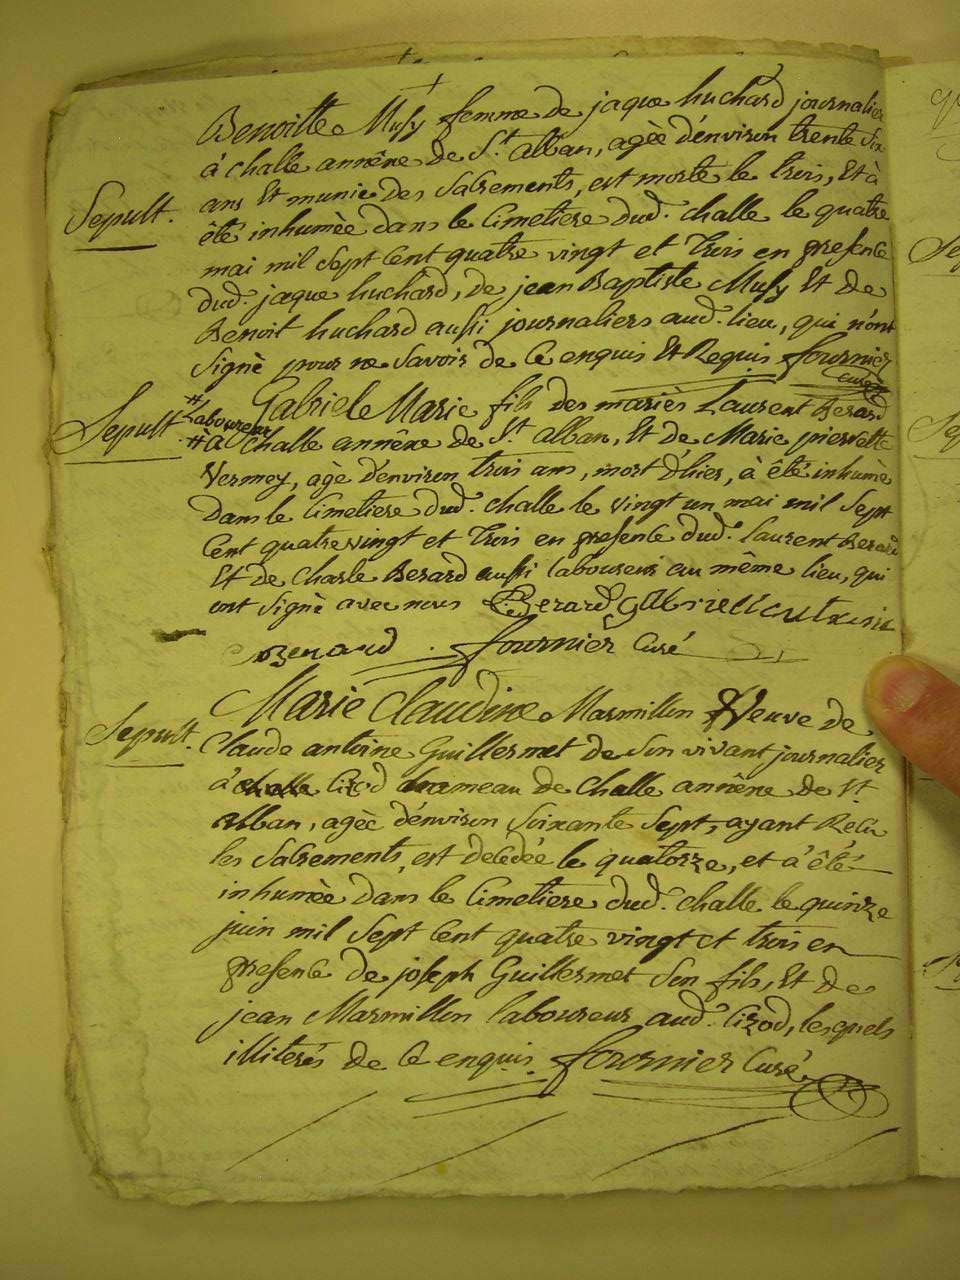 Benoitte Musy femme de jaque huchard journalier
à challe annéxe de St. alban, agèe d'environ trente six
ans Et munie des Sacrements, est morte le trois, Et à
Sepult.
été inhumèe dans le Cimetiere dud. challe le quatre
mai mil Sept Cent quatre vingt et trois en presence
dud. jaque huchard, de jean Baptiste Musy Et de
Benoit huchard aussi journaliers aud. lieu, qui n'ont
Signè pour ne Savoir de Ce enquis Et Requis fournier
curé
Sepult
# Laboureur
Gabriele Marie fils des mariès Laurent Berard
# à challe annéxe de St. alban, Et de Marie pierrette
Vermey, agè d'environ trois ans, mort d'hier, à été inhumè
Dans le Cimetiere dud. challe le vingt un mai mil Sept
Cent quatre vingt et trois en presence dud. Laurent Berard
Et de Charle Berard aussi laboureurs au même lieu, qui
ont Signè avec nous Berard
Benard fournier Curé
Sepult.
Marie Claudine Marmillon Veuve de
Claude antoine Guillermet de Son vivant journalier
à Cizod hameau de Challe annéxe de St.
alban, agèe d'environ Soixante Sept, ayant Relu
les Sacrements, est decedée le quatorze, et à été
inhumèe dans le Cimetiere dud. challe le quinze
juin mil Sept Cent quatre vingt et trois en
presence de joseph Guillermet Son fils, Et de
jean Marmillon laboureur aud. Cizod, lesquels
illiterés de Ce enquis. fournier Curé